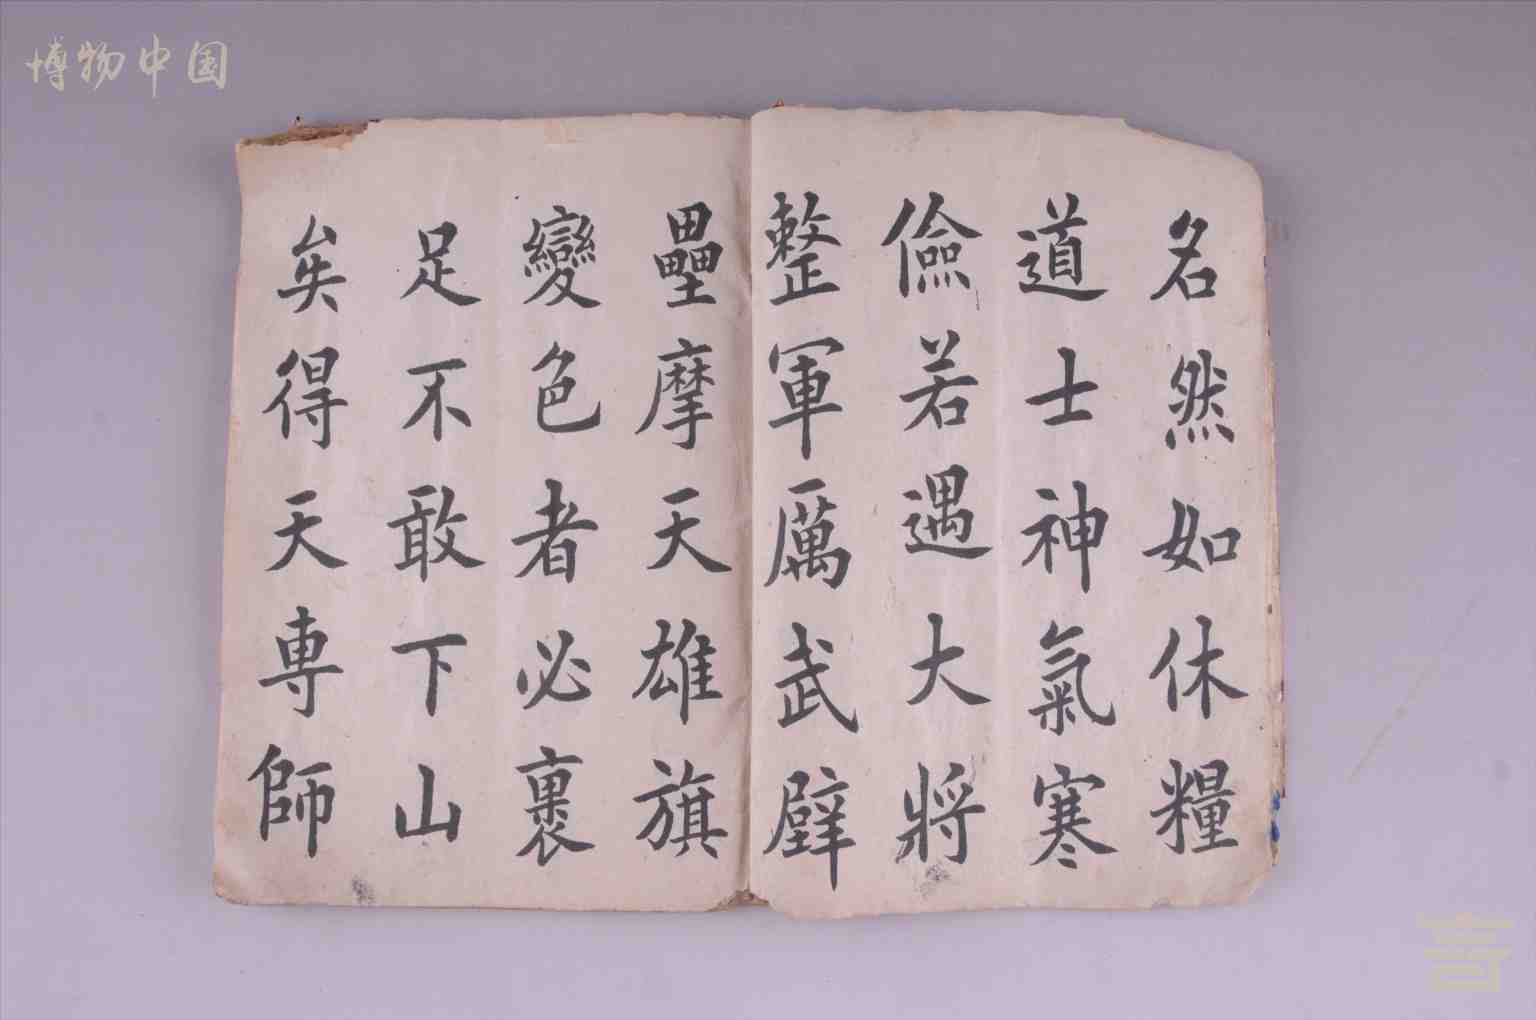 博物中国
名然如休糧
道士神氣寒
儉若遇大將
整軍厲武壁
壘摩天雄旗
變色者必裹
足不敢下山
矣得天專師